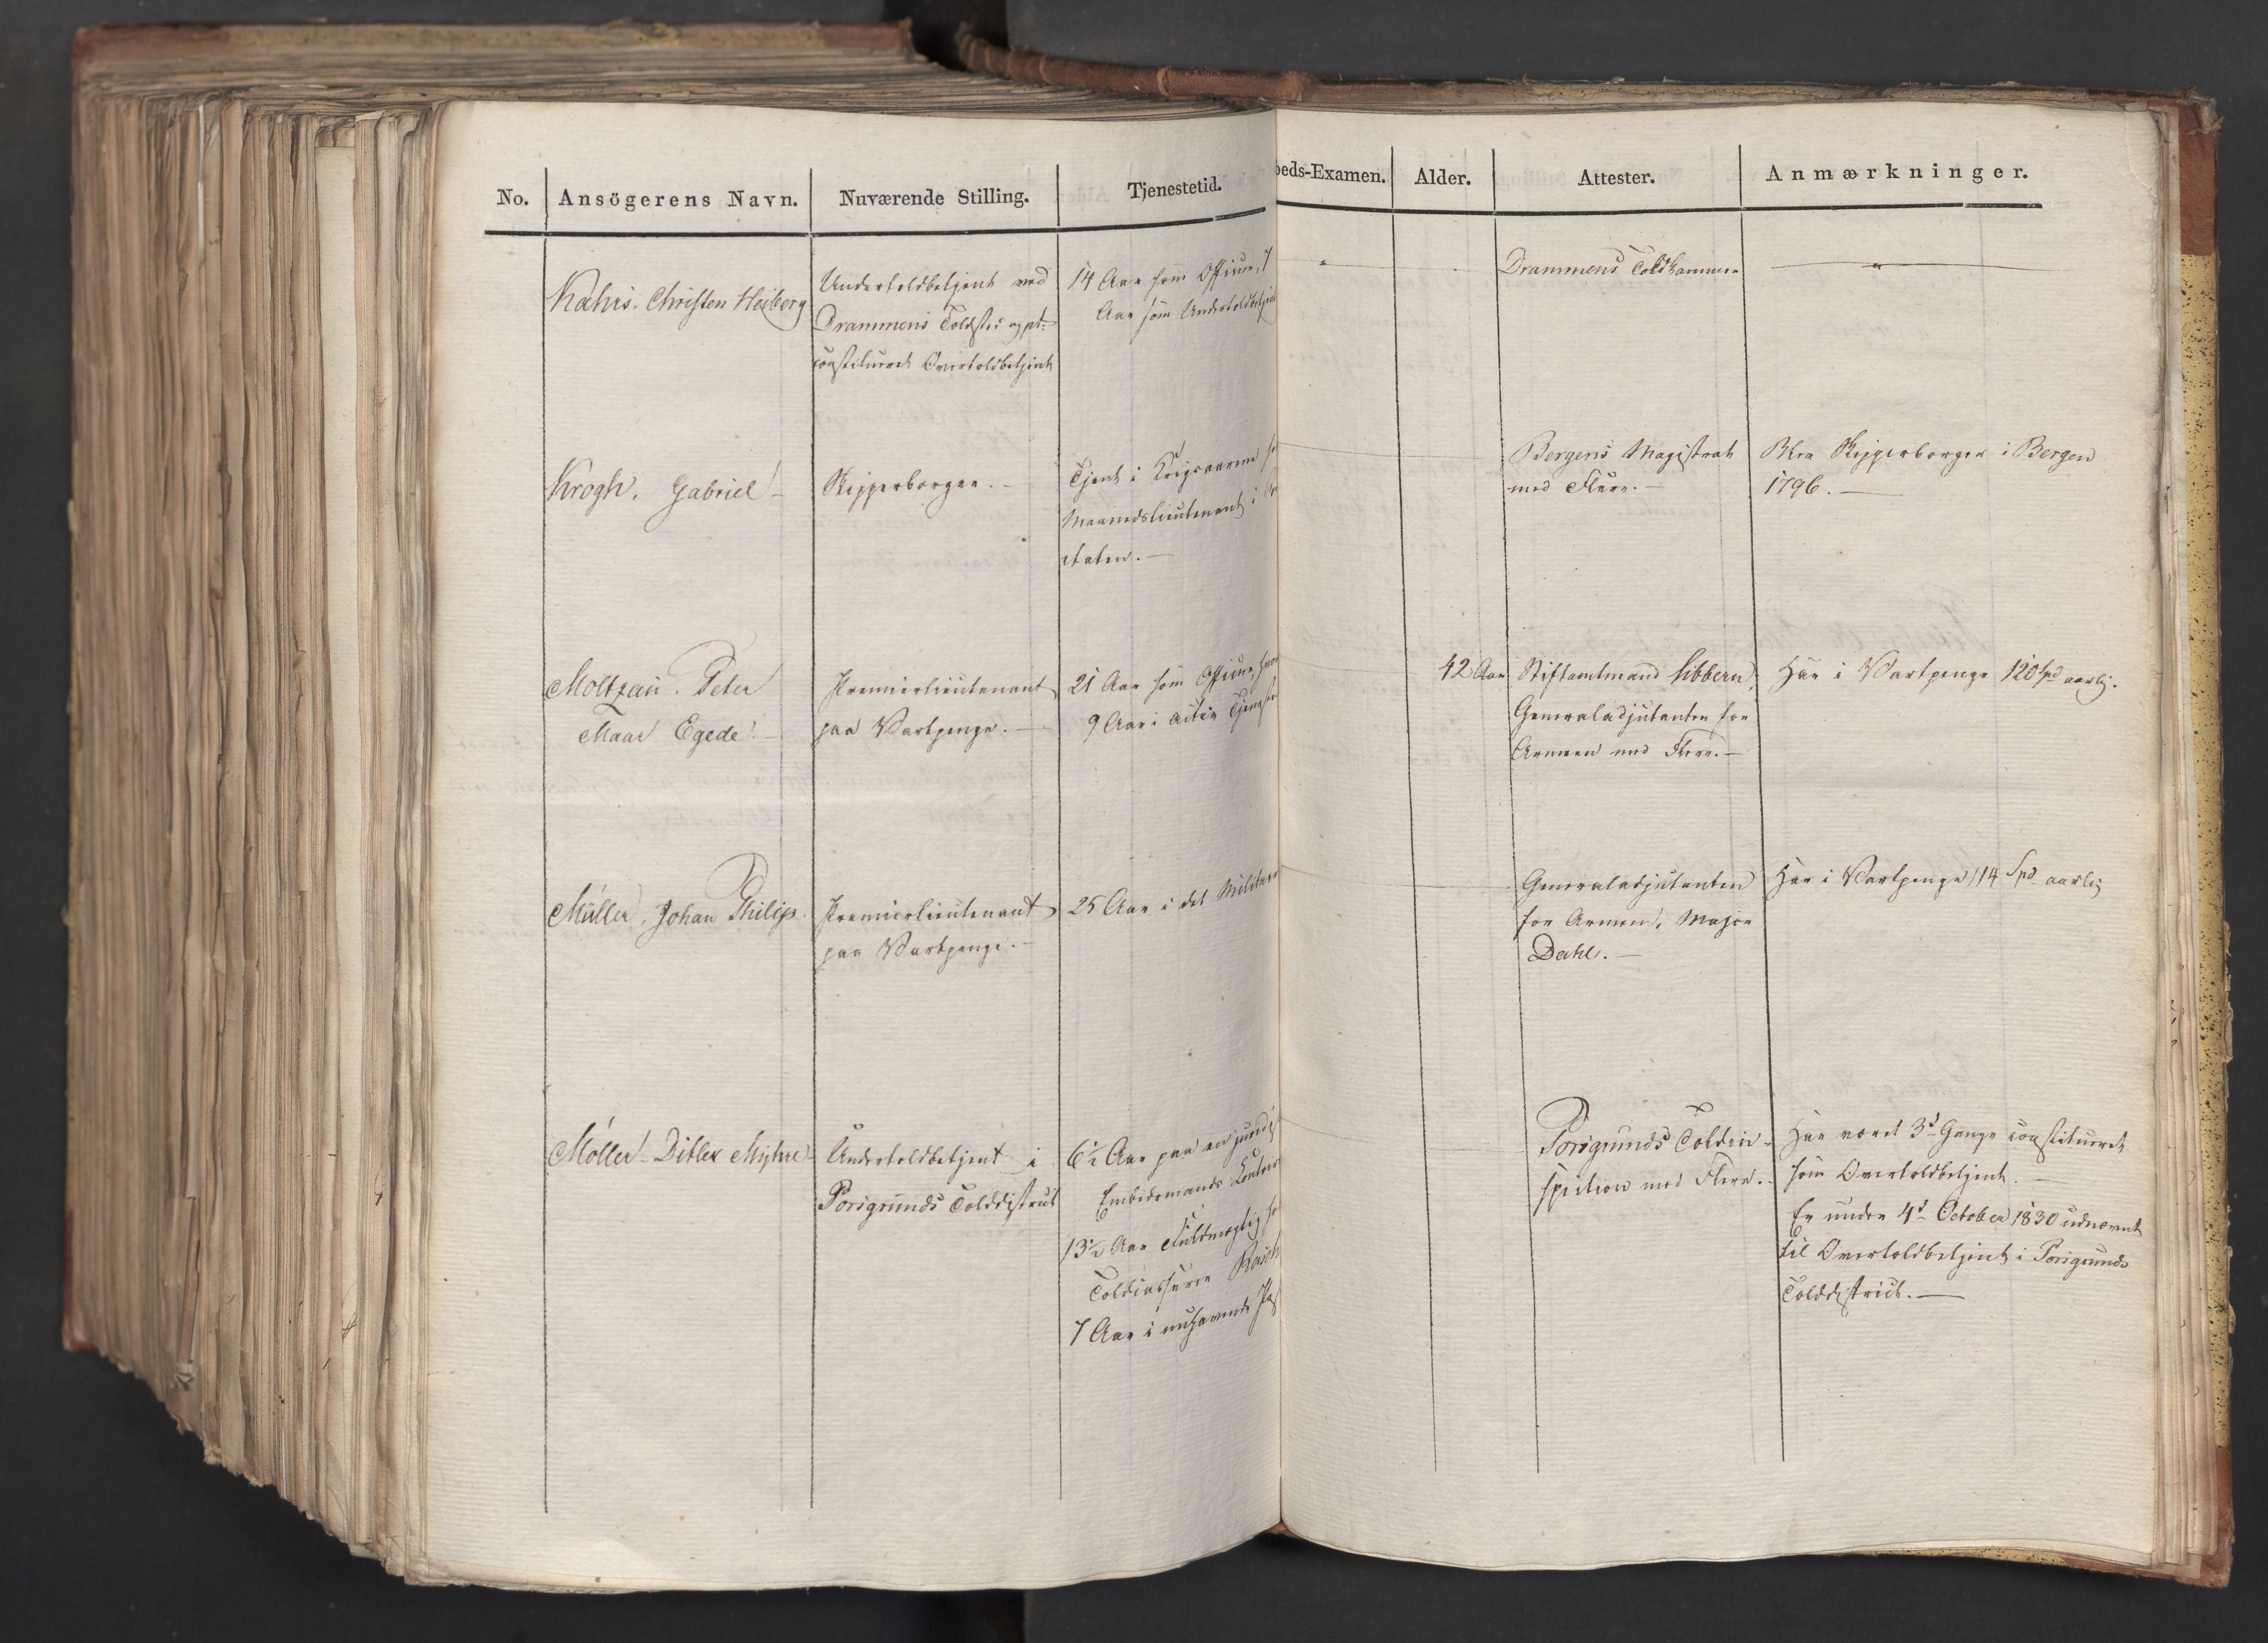 No. Ansögerens Navn. Nuværende Stilling. Tjenestetid.
beds-Examen. Alder. Attester. Anmærkninger.
Kahrs. Christen Heiberg
Undertoldbetjent ved
Drammens Toldsted og pt.
constitueret Overtoldbetjent
14 Aar som Officier, 7
Aar som Undertoldbetjent
Drammens Toldkammer
Krogh, Gabriel
Skipperborger.
Tjent i Krigsaarene
Maanedslieutenant i
etaten.
Bergens Magistrat
med Flere.
Blev Skipperborger i Bergen
1796.
Moltzau. Peter
Maar Egede.
Premierlieutenant
paa Vartpenge.
21 Aar som Officier,
9 Aar i activ
42 Aar
Stiftamtmand Sibbern,
Generaladjutanten for
Armeen med Flere.
Har i Vartpenge 120 Spd aarlig.
Müller, Johan Philip.
Premierlieutenant
paa Vartpenge.
25 Aar i det Militaire
Generaladjutanten
for Armeen, Major
Dahl.
Har i Vartpenge 114 Spd aarlig
Møller Ditlev Myhre
Undertoldbetjent i
Porsgrunds Tolddistrict
6½ Aar paa en juridisk
Embedsmands Contoir
13½ Aar Fuldmægtig
Toldcasserer
7 Aar i nuhavende
Porsgrunds Toldin-
spection med Flere.
Har været 3de Gange constitueret
som Overtoldbetjent.
Er under 4de October 1830 udnævnt
til Overtoldbetjent i Porsgrunds
Tolddistrict.